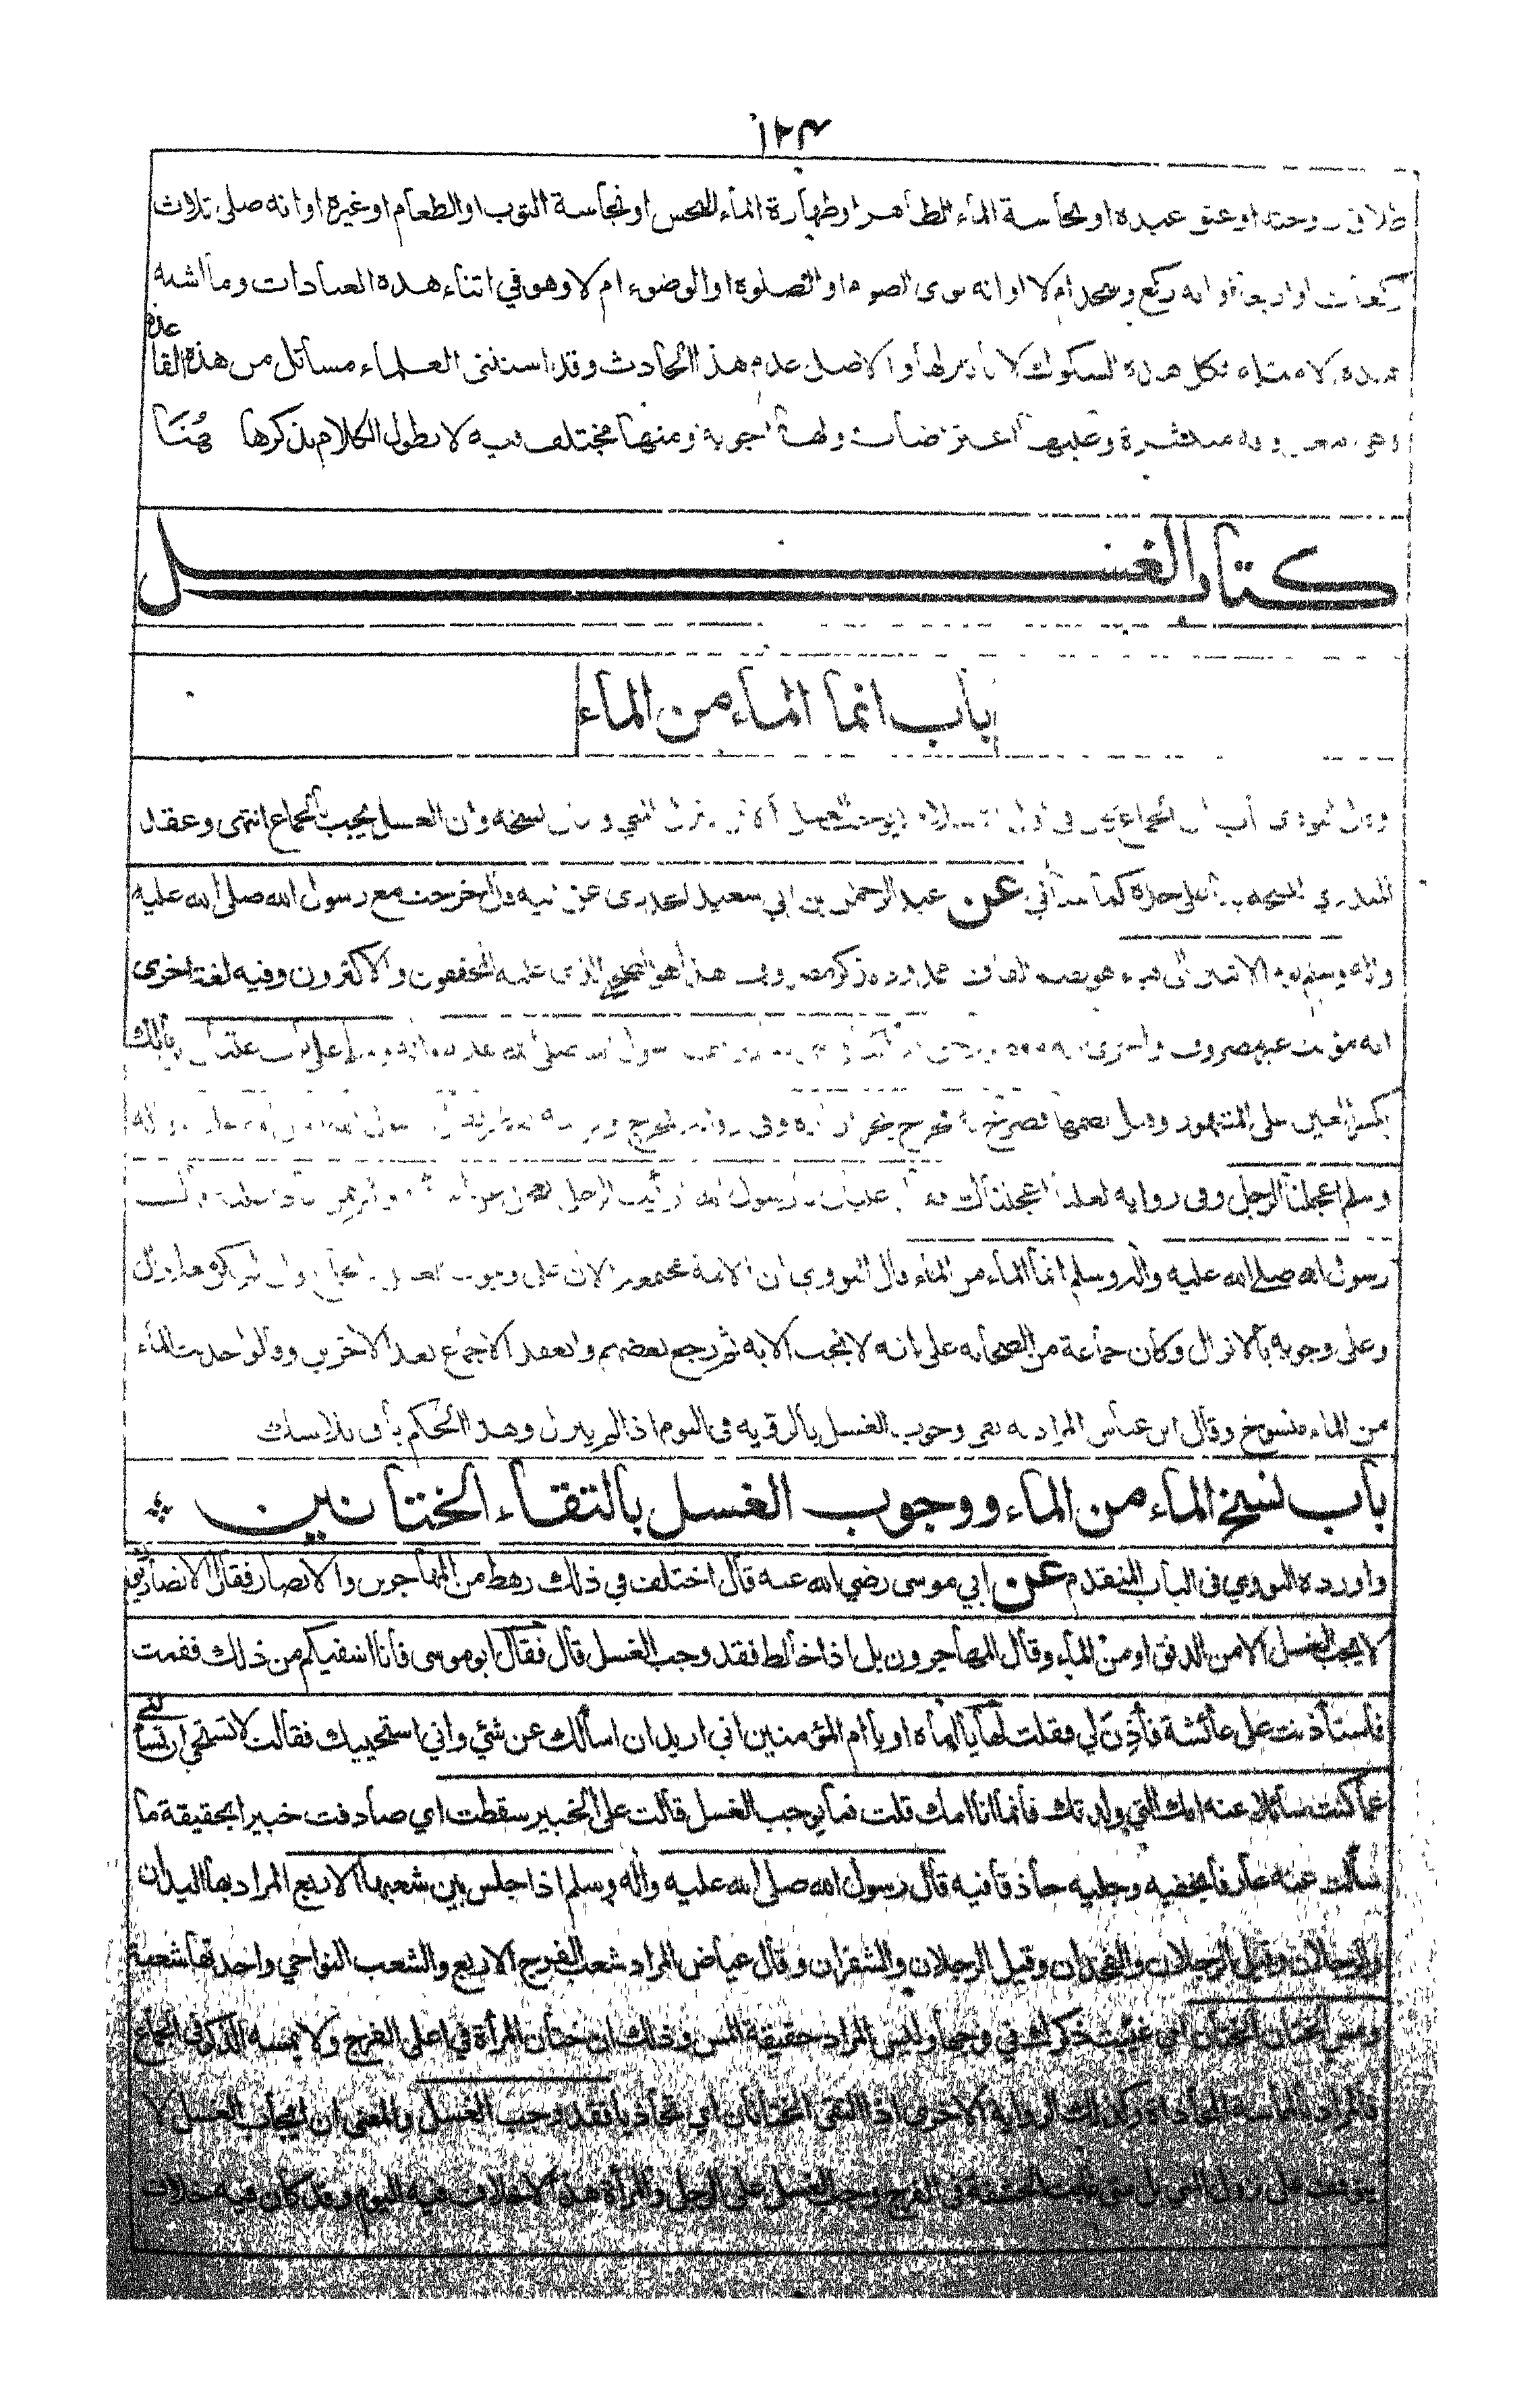 ١٢٤
طلاق زوجته او عتق عبيده او نجاسة الماء الطاهر او طهارة الماء النجس او نجاسة الثوب او الطعام او غيره او انه صلى ثلاث
ركعات او اربعا او انه ركع وسجد ام لا او انه نوى الصوم او الصلوة او الوضوء ام لا وهو في اثناء هذه العبادات وما اشبه
هذه الامثلة فكل هذه الشكوك لا تأثير لها والاصل عدم هذا الحادث وقد استثنى العلماء مسائل من هذه القاعدة
وهي معروفة منتشرة وعليها اعتراضات ولها اجوبة ومنها مختلف فيه لا نطول الكلام بذكرها هُنَا
كتاب الغسل
باب انما الماء من الماء
وقال النووي ان الجماع في اول الاسلام لا يوجب الغسل الا ان ينزل المني وبيان نسخه وان الغسل يجب بالجماع انتهى وعقد
المنذري لنسخه بابا على حدة كما سيأتي عن عبد الرحمن بن ابي سعيد الخدري عن ابيه قال خرجت مع رسول الله صلى الله عليه
واله وسلم يوم الاثنين الى قباء هو بضم القاف ممدود مذكر مصروف هذا هو الصحيح الذي عليه المحققون والاكثرون وفيه لغة اخرى
انه مؤنث غير مصروف واخرى رسول الله صلى الله عليه واله وسلم على باب عتبان بن مالك
بكسر العين على المشهور وقيل بضمها فصرخ به فخرج يجر ازاره وفي رواية فخرج ورأسه يقطر فقال رسول الله صلى الله عليه واله
وسلم اعجلنا الرجل وفي رواية لعلنا اعجلناك فقال عتبان يا رسول الله ارأيت الرجل يعجل عن امرأته ولم يمن ماذا عليه قال
رسول الله صلى الله عليه واله وسلم انما الماء من الماء قال النووي ان الامة مجتمعة الان على وجوب الغسل بالجماع وان لم يكن معه انزال
وعلى وجوبه بالانزال وكان جماعة من الصحابة على انه لا يجب الا به ثم رجع بعضهم وانعقد الاجماع بعد الاخرين وقالوا حديث الماء
من الماء منسوخ وقال ابن عباس المراد به نفي وجوب الغسل بالرؤية في النوم اذا لم ينزل وهذا الحكم باق بلا شك
باب نسخ الماء من الماء ووجوب الغسل بالتقاء الختانين
واورده النووي في الباب المتقدم عن ابي موسى رضي الله عنه قال اختلف في ذلك رهط من المهاجرين والانصار فقال الانصاريون
لا يجب الغسل الا من الدفق او من الماء وقال المهاجرون بل اذا خالط فقد وجب الغسل قال فقال ابو موسى فانا اشفيكم من ذلك فقمت
فاستأذنت على عائشة فأذن لي فقلت لها يا اماه او يا ام المؤمنين اني اريد ان اسألك عن شئ واني استحييك فقالت لا تستحي ان تسألني
عما كنت سائلا عنه امك التي ولدتك فانما انا امك قلت فما يوجب الغسل قالت على الخبير سقطت اي صادفت خبيرا بحقيقة ما
سألت عنه عارفا بخفيه وجليه حاذقا فيه قال رسول الله صلى الله عليه واله وسلم اذا جلس بين شعبها الاربع المراد بها اليدان
والرجلان وقيل الرجلان والفخذان وقيل الرجلان والشفران وقال عياض المراد شعب الفرج الاربع والشعب النواحي واحدتها شعبة
ومس الختان الختان اي غيبت ذكرك في فرجها وليس المراد حقيقة المس وذلك ان ختان المرأة في اعلى الفرج ولا يمسه الذكر في الجماع
فالمراد بالمماسة المحاذاة وكذلك الرواية الاخرى اذا التقى الختانان اي تحاذيا فقد وجب الغسل والمعنى ان ايجاب الغسل لا
يتوقف على نزول المني بل متى غابت الحشفة في الفرج وجب الغسل على الرجل والمرأة هذا لا خلاف فيه اليوم وقد كان فيه خلاف